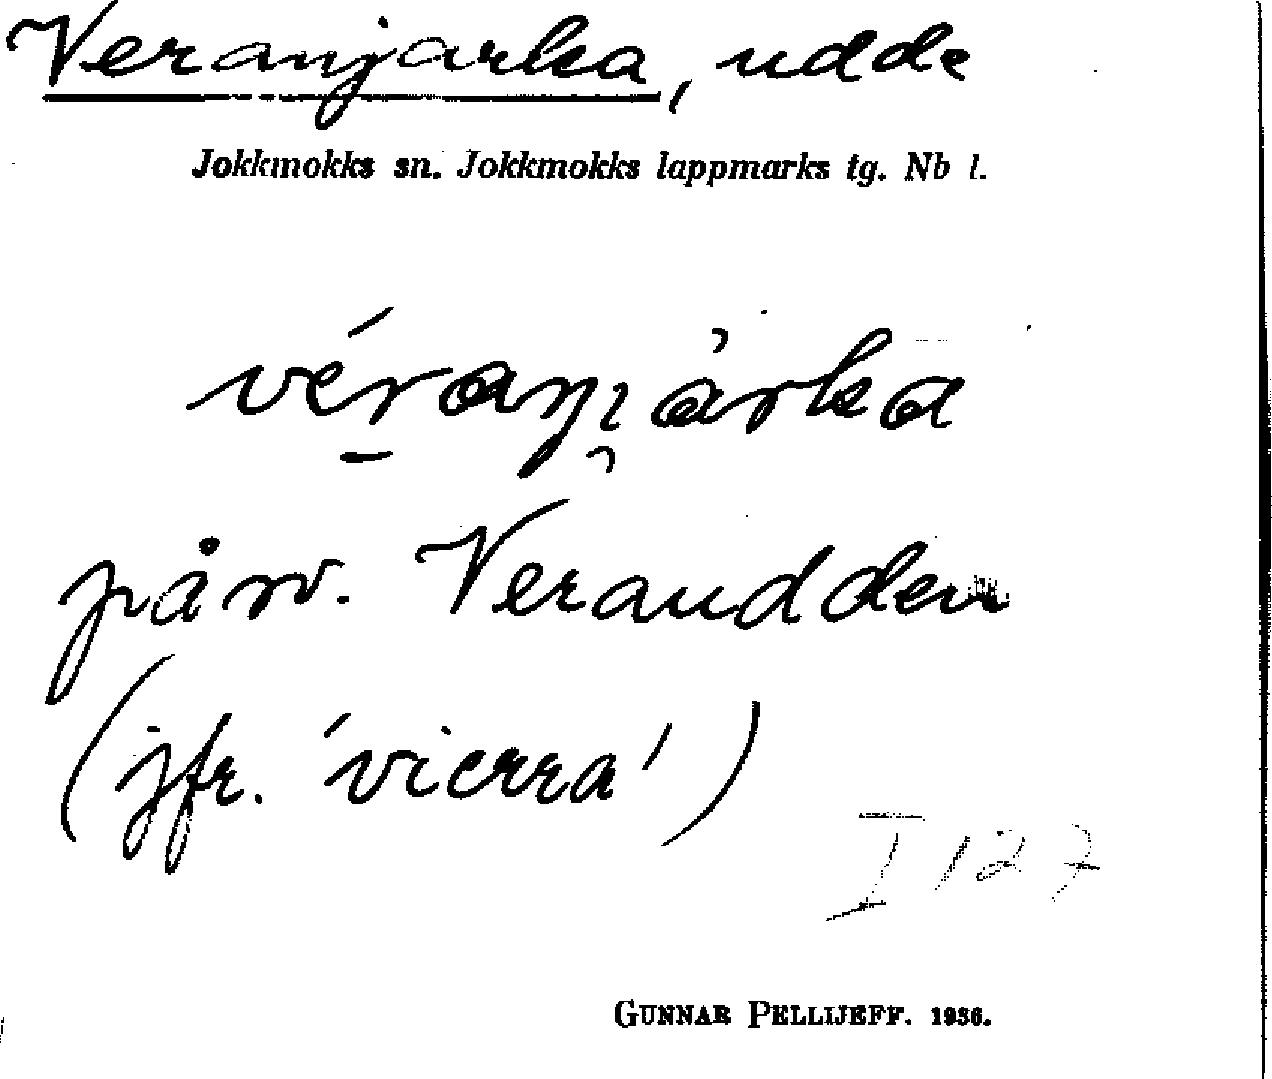 Veranjarka, udde
Jokkmokks sn. Jokkmokks lappmarks tg. Nb l.
på sv. Veraudden
(jfr. 'vierra')
I 127
GUNNAR PELLIJEFF. 1936.